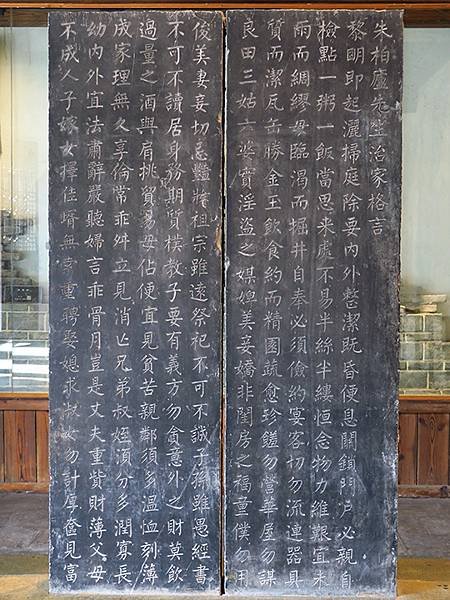 朱柏廬先生治家格言
黎明即起灑掃庭除要內外整潔既昏便息關鎖門戶必親自
檢點一粥一飯當思來處不易半絲半縷恒念物力維艱宜未
雨而綢繆毋臨渴而掘井自奉必須儉約宴客切勿流連器具
質而潔瓦缶勝金玉飲食約而精園蔬愈珍饈勿營華屋勿謀
良田三姑六婆實淫盜之媒婢美妾嬌非閨房之福童僕勿用
俊美妻妾切忌豔粧祖宗雖遠祭祀不可不誠子孫雖愚經書
不可不讀居身務期質樸教子要有義方勿貪意外之財莫飲
過量之酒與肩挑貿易毋佔便宜見貧苦親鄰須多溫恤刻薄
成家理無久享倫常乖舛立見消亡兄弟叔姪須分多潤寡長
幼內外宜法肅辭嚴聽婦言乖骨肉豈是丈夫重貲財薄父母
不成人子嫁女擇佳婿無索重聘娶媳求淑女勿計厚奩見富